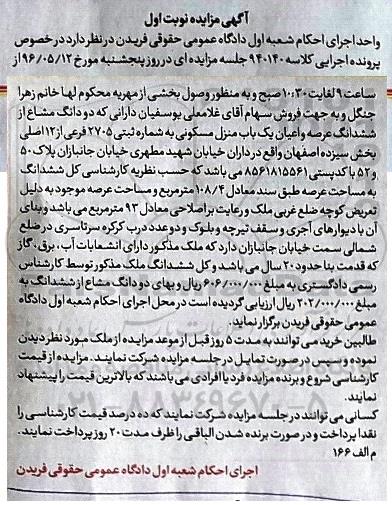 آگهی مزایده نوبت اول
واحد اجرای احکام شعبه اول دادگاه عمومی حقوقی فریدن در نظر دارد در خصوص
پرونده اجرایی کلاسه ۹۴۰۱۴۰ جلسه مزایده ای در روز پنجشنبه مورخ ۹۶/۰۵/۱۲ از
ساعت ۹ لغایت ۱۰:۳۰ صبح و به منظور وصول بخشی از مهریه محکوم لها خانم زهرا
جنگل و به جهت فروش سهام آقای غلامعلی یوسفیان دارانی که دو دانگ مشاع از
ششدانگ عرصه و اعیان یک باب منزل مسکونی به شماره ثبتی ۲۷۰۵ فرعی از ۱۲ اصلی
بخش سیزده اصفهان واقع در داران خیابان شهید مطهری خیابان جانبازان پلاک ۵۰
و ۵۲ با کدپستی ۸۵۶۱۸۱۵۵۶۱ می باشد که حسب نظریه کارشناسی کل ششدانگ
به مساحت عرصه طبق سند معادل ۱۰۸/۴ مترمربع و مساحت عرصه موجود به دلیل
تعریض کوچه ضلع غربی ملک و رعایت بر اصلاحی معادل ۹۳ مترمربع می باشد و بنای
آن با دیوارهای آجری و سقف تیرچه و بلوک و دو عدد درب کرکره سرتاسری در ضلع
شمالی سمت خیابان جانبازان دارد که ملک مذکور دارای انشعابات آب، برق، گاز
که قدمت بنا حدود ۲۰ سال می باشد و کل ششدانگ ملک مذکور توسط کارشناس
رسمی دادگستری به مبلغ ۶۰۶/۰۰۰/۰۰۰ ریال و بهای دو دانگ مشاع از ششدانگ به
مبلغ ۲۰۲/۰۰۰/۰۰۰ ریال ارزیابی گردیده است در محل اجرای احکام شعبه اول دادگاه
عمومی حقوقی فریدن برگزار نماید.
طالبین خرید می توانند به مدت ۵ روز قبل از موعد مزایده از ملک مورد نظر دیدن
نموده و سپس در صورت تمایل در جلسه مزایده شرکت نمایند. مزایده از قیمت
کارشناسی شروع و برنده مزایده فرد یا افرادی می باشند که بالاترین قیمت را پیشنهاد
نمایند.
کسانی می توانند در جلسه مزایده شرکت نمایند که ده درصد قیمت کارشناسی را
نقدا پرداخت و در صورت برنده شدن الباقی را ظرف مدت ۲۰ روز پرداخت نمایند.
م الف ۱۶۶
اجرای احکام شعبه اول دادگاه عمومی حقوقی فریدن